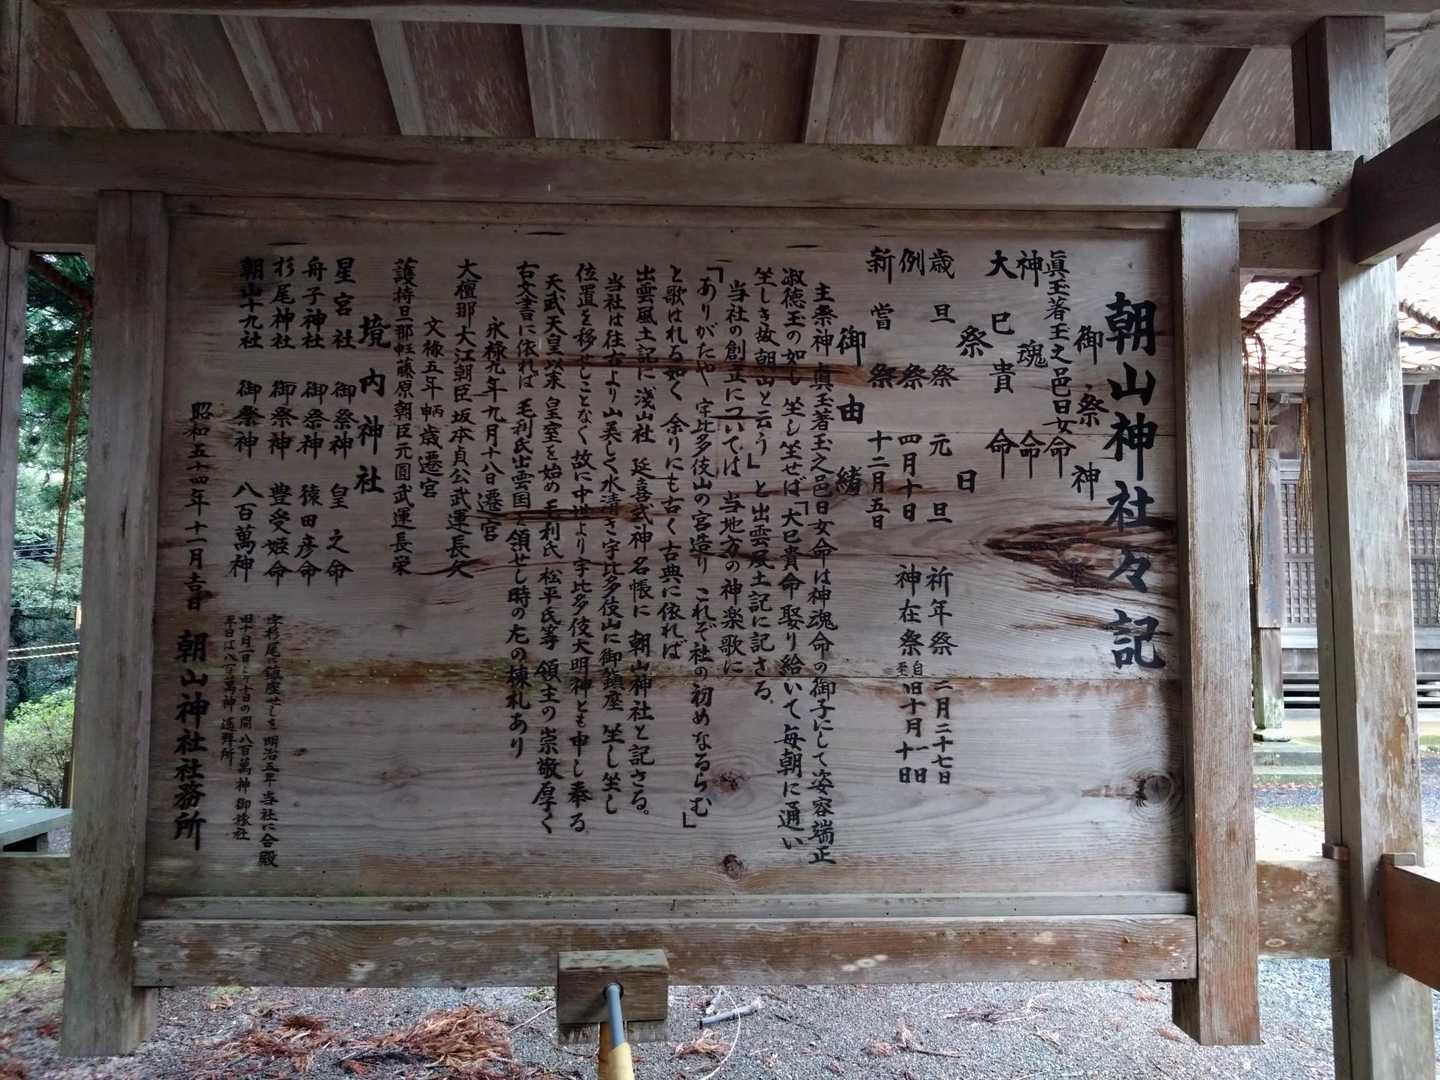 朝山神社々記
御祭神
眞玉著玉之邑日女命
神魂命
大巳貴命
祭日
歳旦祭 元旦 祈年祭 二月二十七日
例祭 四月十日 神在祭 自旧十月一日 至十日
新嘗祭 十二月五日
御由緒
主祭神眞玉著玉之邑日女命は神魂命の御子にして姿容端正
淑徳玉の如し 坐し坐せば「大巳貴命娶り給いて毎朝に通い
坐しき故朝山と云う」と出雲風土記に記さる。
当社の創立については 当地方の神楽歌に
「ありがたや 宇比多伎山の宮造り これぞ社の初めなるらむ」
と歌はれる如く 余りにも古く古典に依れば
出雲風土記に浅山社 延喜式神名帳に 朝山神社と記さる。
当社は往古より山美しく水清き宇比多伎山に御鎮座 坐し坐し
位置を移せしことなく故に中世より宇比多伎大明神とも申し奉る
天武天皇以来 皇室を始め 毛利氏 松平氏等 領主の崇敬厚く
古文書に依れば 毛利氏出雲国を領せし時の左の棟札あり
永禄九年九月十八日遷宮
大檀那大江朝臣坂本貞公武運長久
文禄五年申丙歳遷宮
護持旦那軽藤原朝臣元圓武運長栄
境内神社
星宮社 御祭神 皇之命
舟子神社 御祭神 猿田彦命
杉尾神社 御祭神 豊受姫命 字杉尾に鎮座せしを明治五年当社に合殿
朝山十九社 御祭神 八百萬神 旧十月一日と十日の間八百萬神御旅社
平日は八百萬神遥拜所
昭和五十四年十一月吉日 朝山神社社務所